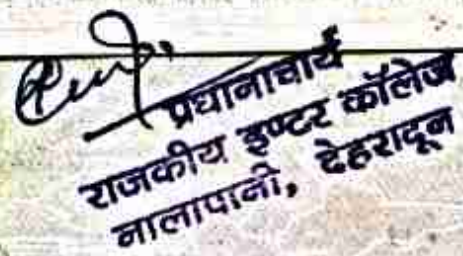 प्रधानाचार्य
राजकीय इण्टर कॉलेज
नालापानी, देहरादून